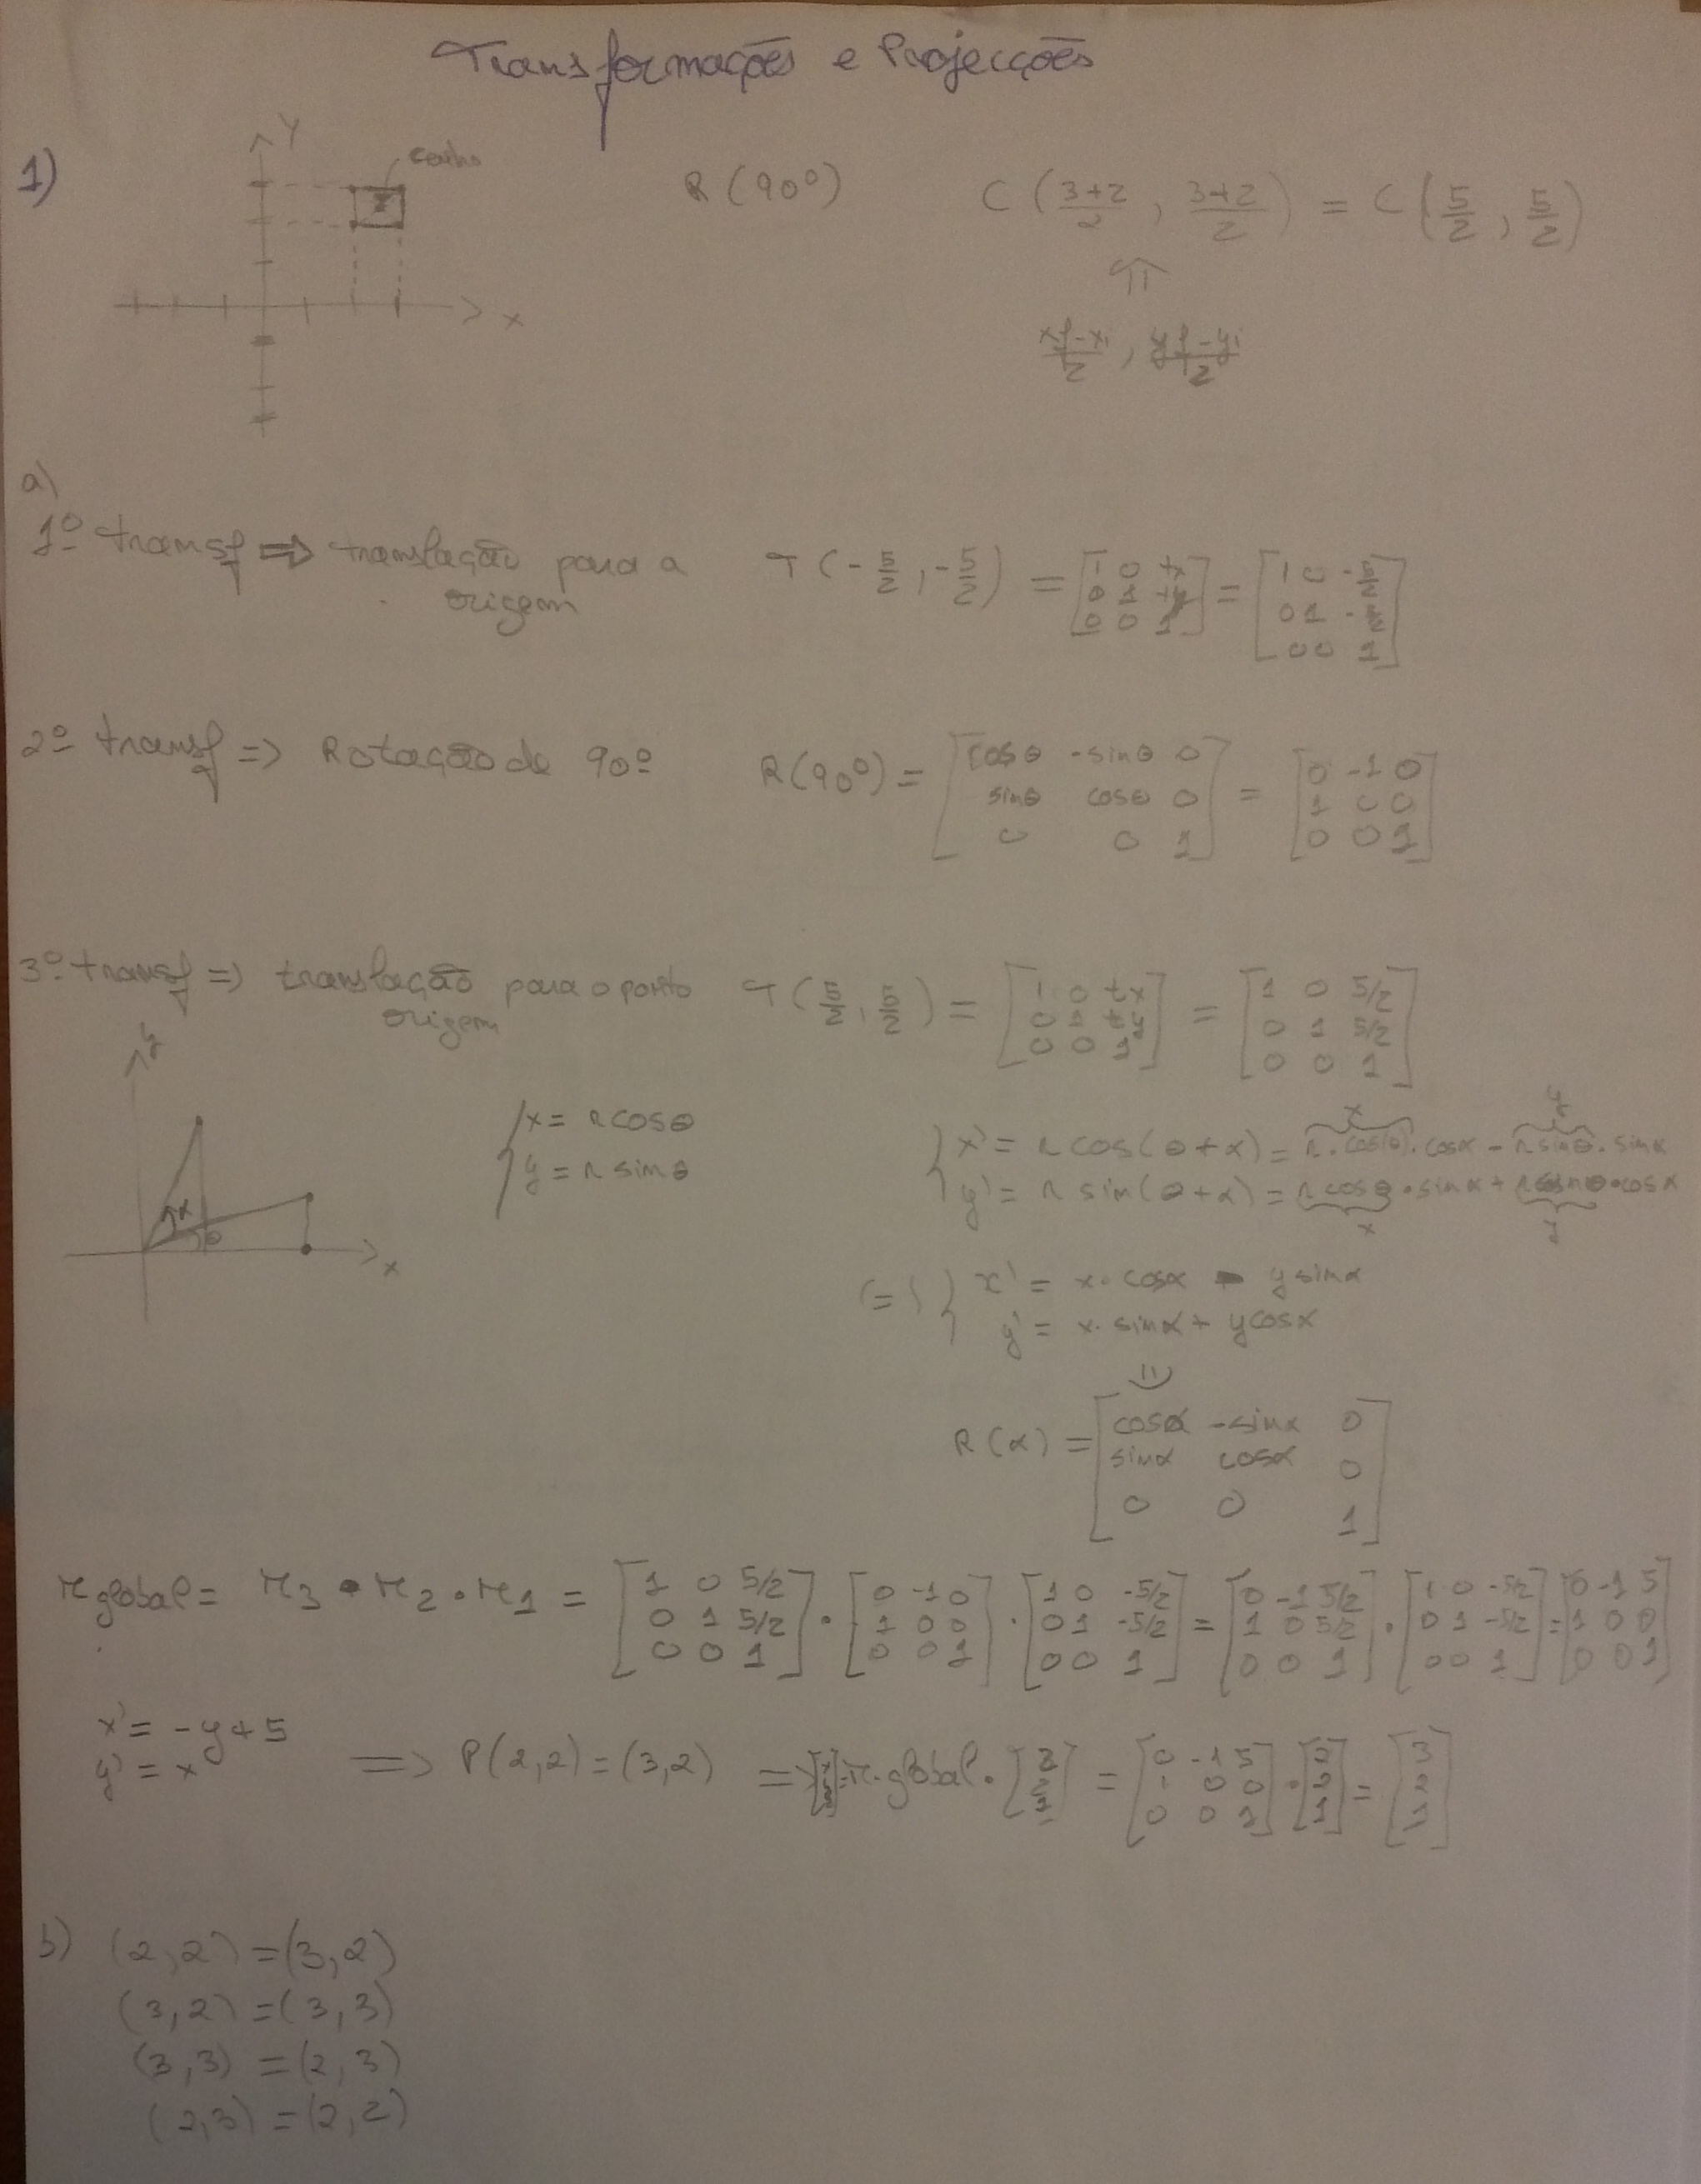 Transformações e Projecções
1)
Y
x
R(90º)
C (3+2/2, 3+2/2) = C(5/2, 5/2)
⇑
xf-xi/2, yf-yi/2
a)
1º transf => translação para a origem T(-5/2, -5/2) = [1 0 tx; 0 1 ty; 0 0 1] = [1 0 -5/2; 0 1 -5/2; 0 0 1]
2º transf => Rotação de 90º R(90º) = [cosθ -sinθ 0; sinθ cosθ 0; 0 0 1] = [0 -1 0; 1 0 0; 0 0 1]
3º transf => translação para o ponto origem T(5/2, 5/2) = [1 0 tx; 0 1 ty; 0 0 1] = [1 0 5/2; 0 1 5/2; 0 0 1]
y
α
θ
x
{x = r cosθ
y = r sinθ
{x' = r cos(θ+α) = r.cos(θ).cosα - r sinθ.sinα
y' = r sin(θ+α) = r cosθ.sinα + r sinθ.cosα
x
y
x
y
(=) {x' = x.cosα - y sinα
y' = x.sinα + y cosα
R(α) = [cosα -sinα 0; sinα cosα 0; 0 0 1]
M global = M3 . M2 . M1 = [1 0 5/2; 0 1 5/2; 0 0 1] . [0 -1 0; 1 0 0; 0 0 1] . [1 0 -5/2; 0 1 -5/2; 0 0 1] = [0 -1 5/2; 1 0 5/2; 0 0 1] . [1 0 -5/2; 0 1 -5/2; 0 0 1] = [0 -1 5; 1 0 0; 0 0 1]
x' = -y+5
y' = x
=> P(2,2) = (3,2) => = M.global. = [0 -1 5; 1 0 0; 0 0 1] . [2; 2; 1] = [3; 2; 1]
b) (2,2) = (3,2)
(3,2) = (3,3)
(3,3) = (2,3)
(2,3) = (2,2)